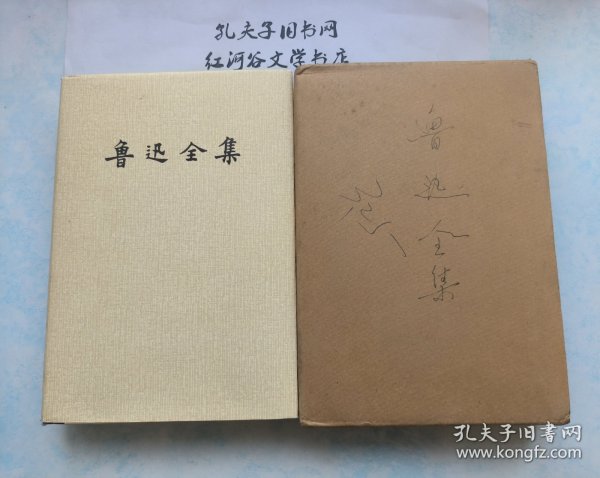 孔夫子旧书网
红河谷文学书店
鲁迅全集
鲁迅全集
孔夫子旧書网
www.kongfz.com